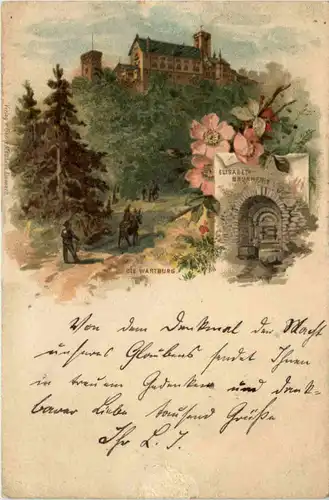 ELISABETH
BRUNNEN
DIE WARTBURG
Von dem Denkmal der Macht
unseres Glaubens sendet Ihnen
in treuem Gedenken und dank-
barer Liebe tausend Grüße
Ihr L. J.